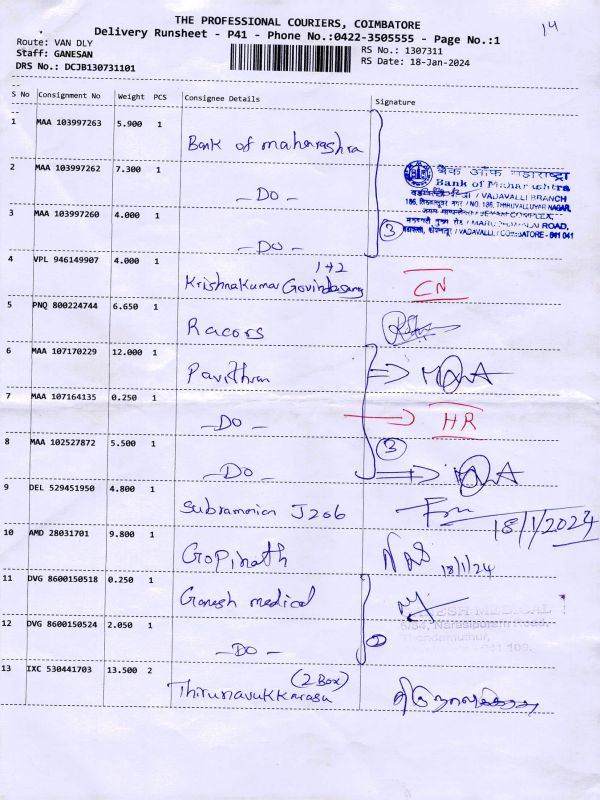 THE PROFESSIONAL COURIERS, COIMBATORE
14
Delivery Runsheet - P41 - Phone No.:0422-3505555 - Page No.:1
Route: VAN DLY
RS No.: 1307311
Staff: GANESAN
RS Date: 18-Jan-2024
DRS No.: DCJB130731101
S No Consignment No Weight PCS Consignee Details Signature
1 MAA 103997263 5.900 1 Bank of maharashra
2 MAA 103997262 7.300 1 -DO-
बैंक ऑफ महाराष्ट्र
Bank of Maharashtra
/ VADAVALLI BRANCH
/ NO. 186, THIRUVALLUVAR NAGAR,
3 MAA 103997260 4.000 1 -DO-
3
ROAD,
/ VADAVALLI, / COIMBATORE - 641 041
4 VPL 946149907 4.000 1 1+2
Krishnakumar Govindasamy CN
5 PNQ 800224744 6.650 1 Racors
6 MAA 107170229 12.000 1 Pavithran
7 MAA 107164135 0.250 1 -DO- HR
8 MAA 102527872 5.500 1 -DO- 3
9 DEL 529451950 4.800 1 Subramanian J206 18/1/2024
10 AMD 28031701 9.800 1 Gopinath 18/1/24
11 DVG 8600150518 0.250 1 Ganesh medical
GANESH MEDICAL
5/34, Narasipuram Road,
Thondamuthur,
12 DVG 8600150524 2.050 1 -DO- 2
641 109.
13 IXC 530441703 13.500 2 (2 Box)
Thirunavukkarasu திருநாவுக்கரசு